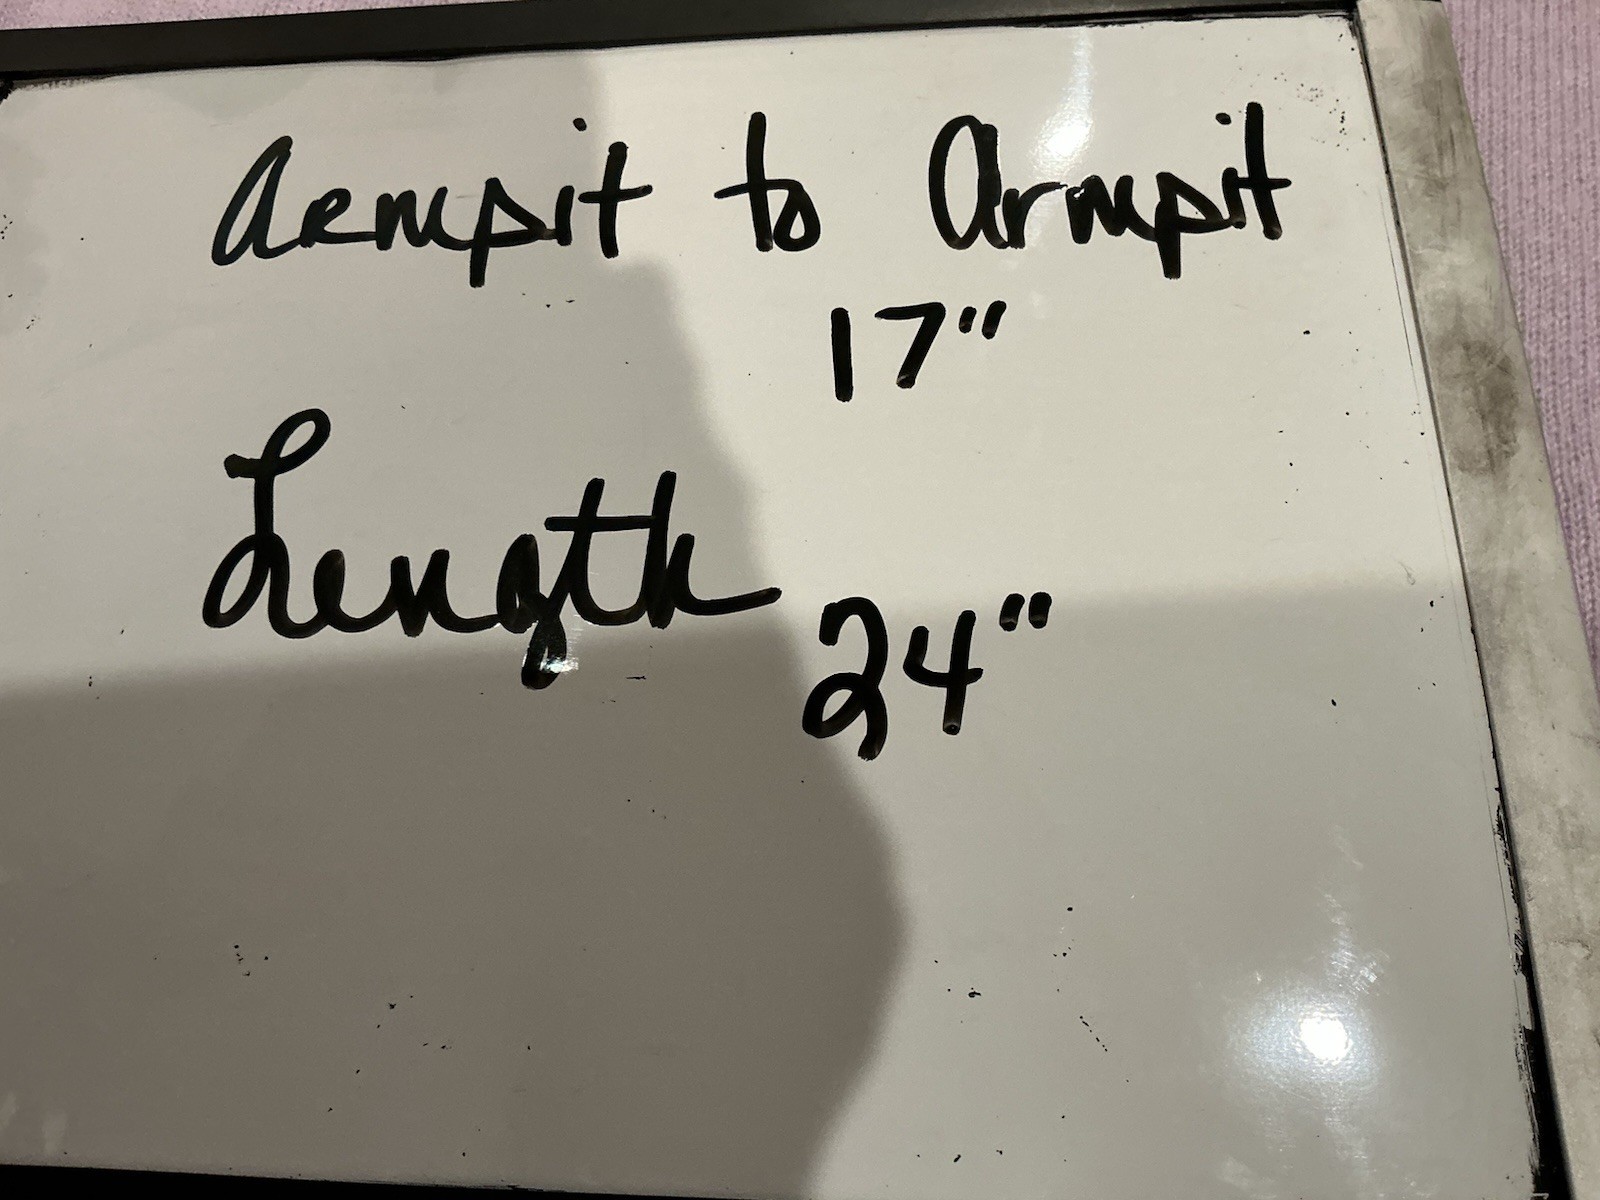 Armpit to Armpit
17"
Length
24"